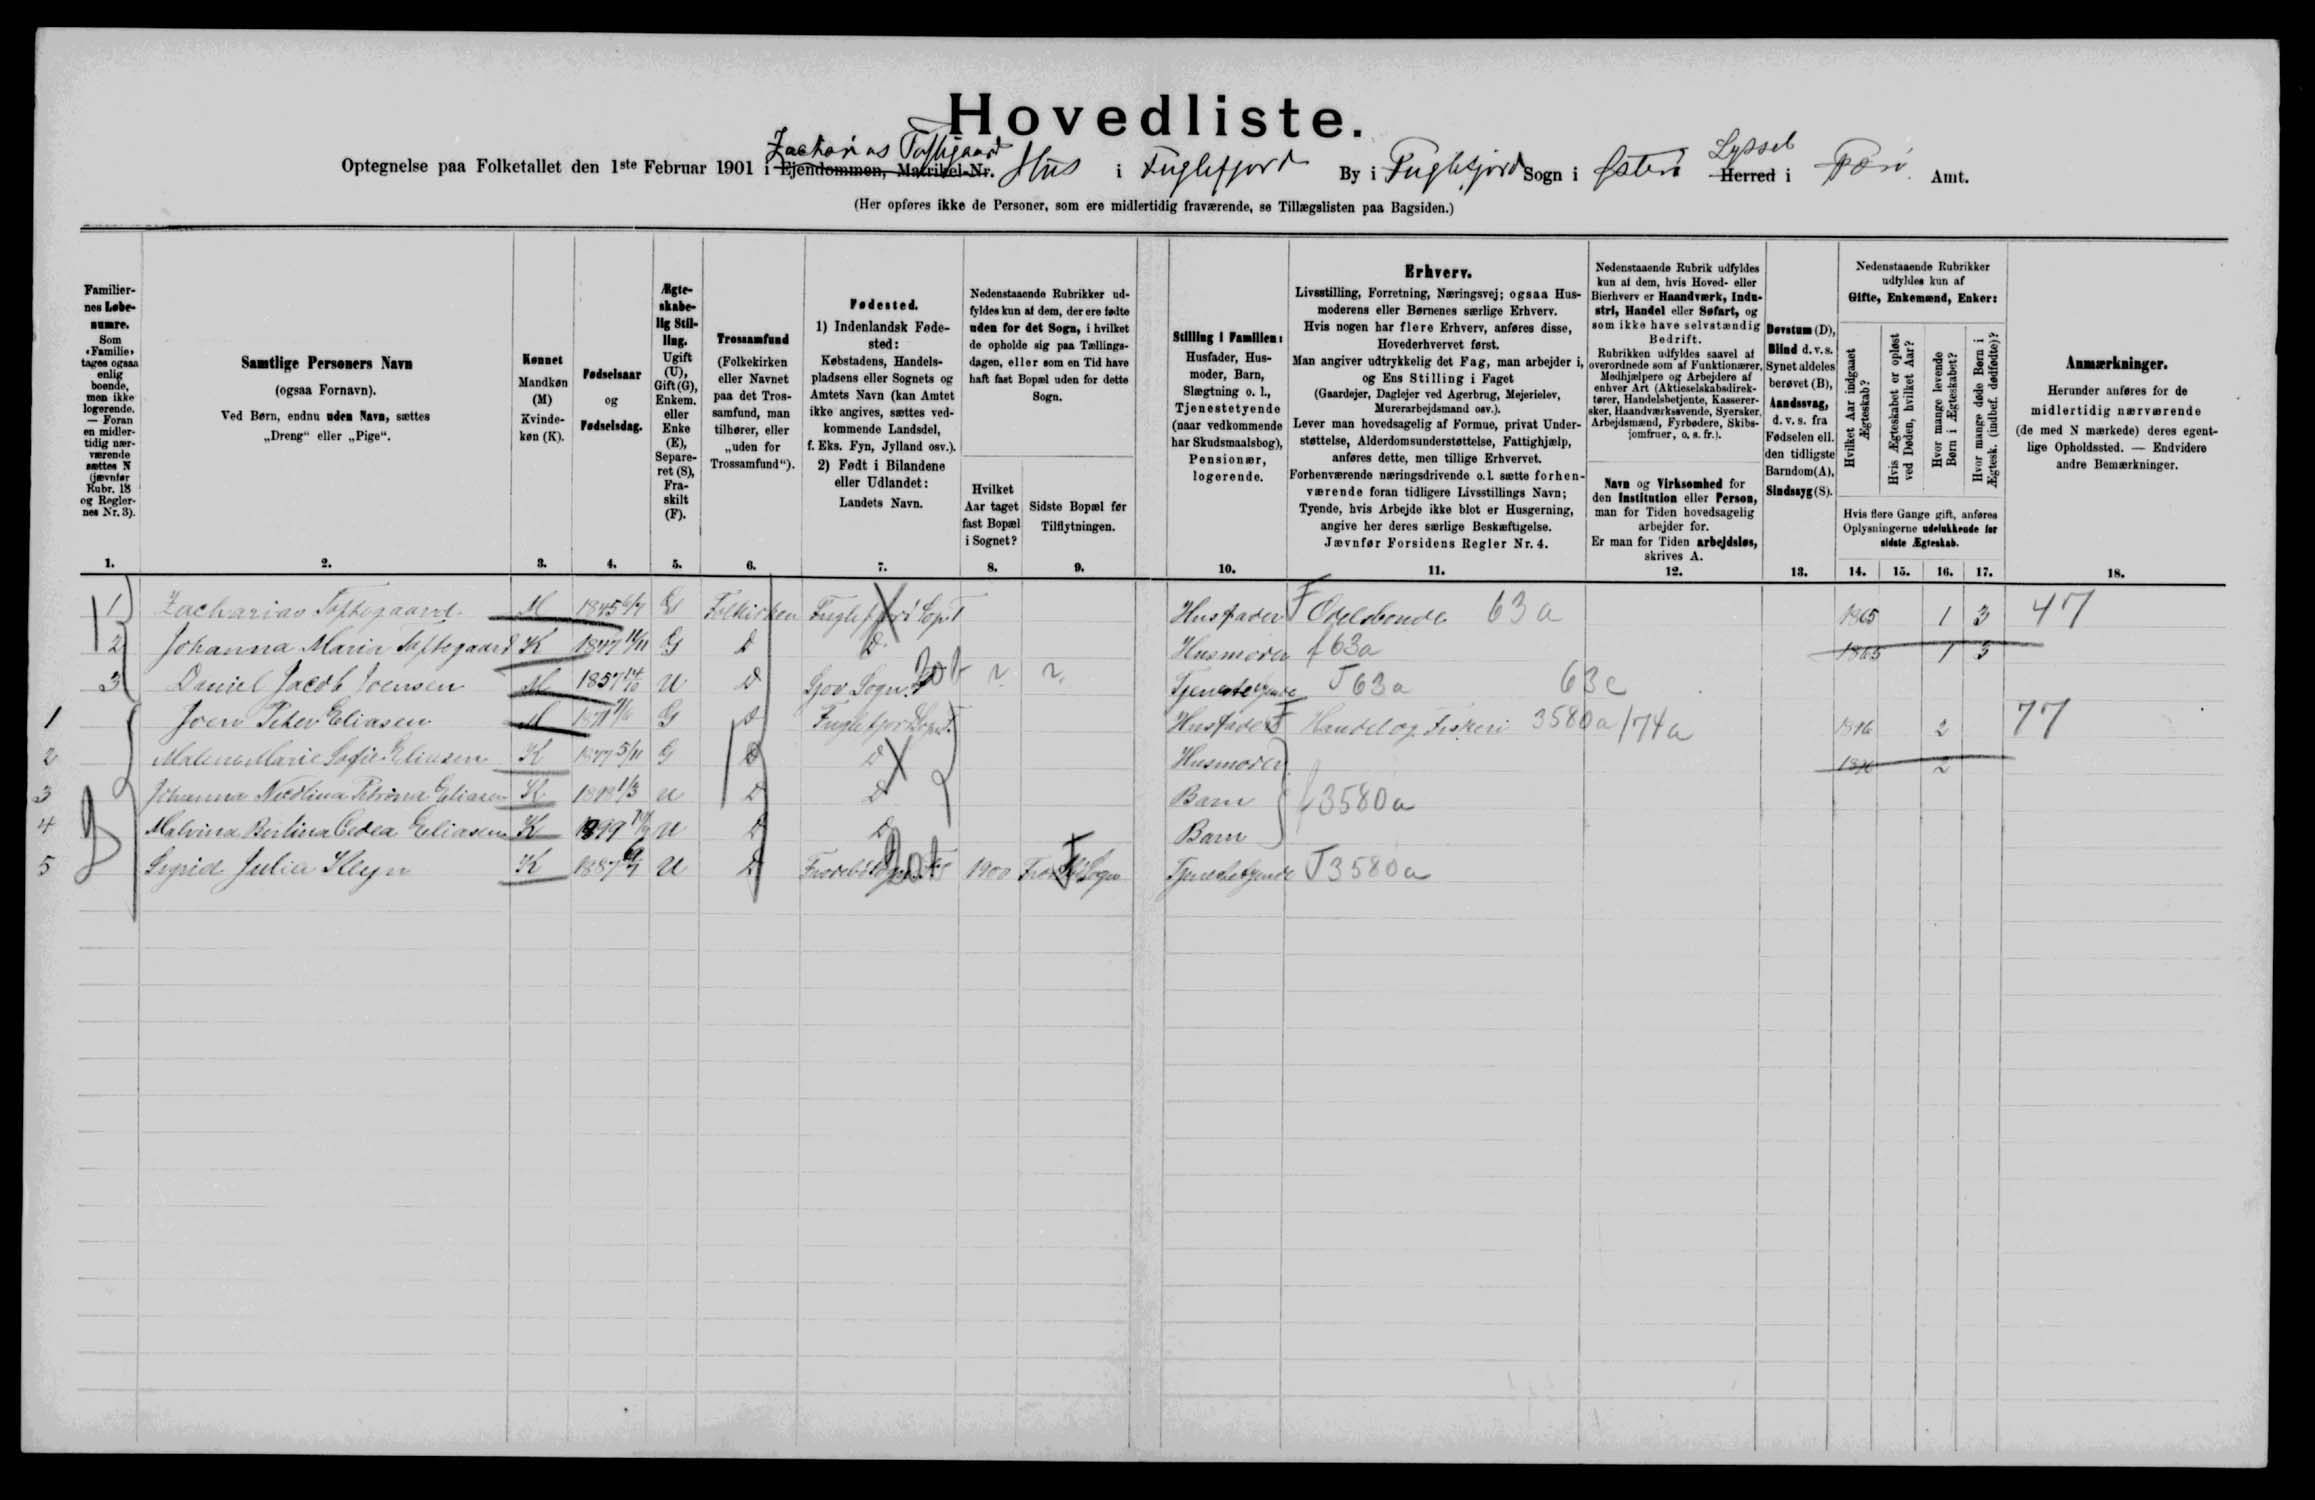 Hovedliste.
Zacharias Toftegaard
Optegnelse paa Folketallet den 1ste Februar 1901 i Ejendommen, Matrikel-Nr. Hus i Fuglefjord By i Fuglefjord Sogn i Østerø Herred i Færø Amt.
Syssel
(Her opføres ikke de Personer, som ere midlertidig fraværende, se Tillægslisten paa Bagsiden.)
Familiernes Løbenumre.
Som «Familie» tages ogsaa enlig boende, men ikke logerende. — Foran en midlertidig nærværende sættes N (jævnfør Rubr. 18 og Reglernes Nr. 3).
1.
Samtlige Personers Navn
(ogsaa Fornavn).
Ved Børn, endnu uden Navn, sættes
„Dreng“ eller „Pige“.
2.
Kønnet
Mandkøn (M)
Kvindekøn (K).
3.
Fødselsaar
og
Fødselsdag.
4.
Ægteskabelig Stilling.
Ugift (U), Gift (G), Enkem. eller Enke (E), Separeret (S), Fraskilt (F).
5.
Trossamfund
(Folkekirken eller Navnet paa det Trossamfund, man tilhører, eller „uden for Trossamfund“).
6.
Fødested.
1) Indenlandsk Fødested:
Købstadens, Handelspladsens eller Sognets og Amtets Navn (kan Amtet ikke angives, sættes vedkommende Landsdel, f. Eks. Fyn, Jylland osv.).
2) Født i Bilandene eller Udlandet:
Landets Navn.
7.
Nedenstaaende Rubrikker udfyldes kun af dem, der ere fødte uden for det Sogn, i hvilket de opholde sig paa Tællingsdagen, eller som en Tid have haft fast Bopæl uden for dette Sogn.
Hvilket Aar taget fast Bopæl i Sognet?
8.
Sidste Bopæl før Tilflytningen.
9.
Stilling i Familien:
Husfader, Husmoder, Barn, Slægtning o. l., Tjenestetyende (naar vedkommende har Skudsmaalsbog), Pensionær, logerende.
10.
Erhverv.
Livsstilling, Forretning, Næringsvej; ogsaa Husmoderens eller Børnenes særlige Erhverv.
Hvis nogen har flere Erhverv, anføres disse, Hovederhvervet først.
Man angiver udtrykkelig det Fag, man arbejder i, og Ens Stilling i Faget
(Gaardejer, Daglejer ved Agerbrug, Mejerielev, Murerarbejdsmand osv.).
Lever man hovedsagelig af Formue, privat Understøttelse, Alderdomsunderstøttelse, Fattighjælp, anføres dette, men tillige Erhvervet.
Forhenværende næringsdrivende o. l. sætte forhenværende foran tidligere Livsstillings Navn;
Tyende, hvis Arbejde ikke blot er Husgerning, angive her deres særlige Beskæftigelse.
Jævnfør Forsidens Regler Nr. 4.
11.
Nedenstaaende Rubrik udfyldes kun af dem, hvis Hoved- eller Bierhverv er Haandværk, Industri, Handel eller Søfart, og som ikke have selvstændig Bedrift.
Rubrikken udfyldes saavel af overordnede som af Funktionærer, Medhjælpere og Arbejdere af enhver Art (Aktieselskabsdirektører, Handelsbetjente, Kasserersker, Haandværkssvende, Syersker, Arbejdsmænd, Fyrbødere, Skibsjomfruer, o. s. fr.).
Navn og Virksomhed for den Institution eller Person, man for Tiden hovedsagelig arbejder for.
Er man for Tiden arbejdsløs, skrives A.
12.
Døvstum (D), Blind d. v. s. Synet aldeles berøvet (B), Aandssvag, d. v. s. fra Fødselen ell. den tidligste Barndom (A), Sindssyg (S).
13.
Nedenstaaende Rubrikker udfyldes kun af
Gifte, Enkemænd, Enker:
Hvilket Aar indgaaet Ægteskab?
Hvis Ægteskabet er opløst ved Døden, hvilket Aar?
Hvor mange levende Børn i Ægteskabet?
Hvor mange døde Børn i Ægtesk. (indbef. dødfødte)?
Hvis flere Gange gift, anføres Oplysningerne udelukkende for sidste Ægteskab.
14. 15. 16. 17.
Anmærkninger.
Herunder anføres for de midlertidig nærværende (de med N mærkede) deres egentlige Opholdssted. — Endvidere andre Bemærkninger.
18.
1 Zacharias Toftegaard M 1845 G Folkirken Fuglefjord Sogn Husfader F Odelsbonde 63a 1865 1 3 47
2 Johanna Maria Toftegaard K 1847 11/11 G D D Husmoder f 63a 1865 1 3
3 Daniel Jacob Joensen M 1857 U D Gjov Sogn Tjenestetyende T 63a 63c
1 Joen Peter Eliasen M G D Fuglefjord Sogn Husfader F Handel og Fiskeri 3580a /74a 1896 2 77
2 Malene Marie Sofie Eliasen K 1877 5/11 G D D Husmoder 1896 2
3 Johanna Nicolina Petrina Eliasen K 1898 1/3 U D D Barn f 3580a
4 Malvina Bertina Cedea Eliasen K 1899 U D D Barn
5 Sigrid Julia Kleyn K 1887 U D 1900 Sogn Tjenestetyende T 3580a